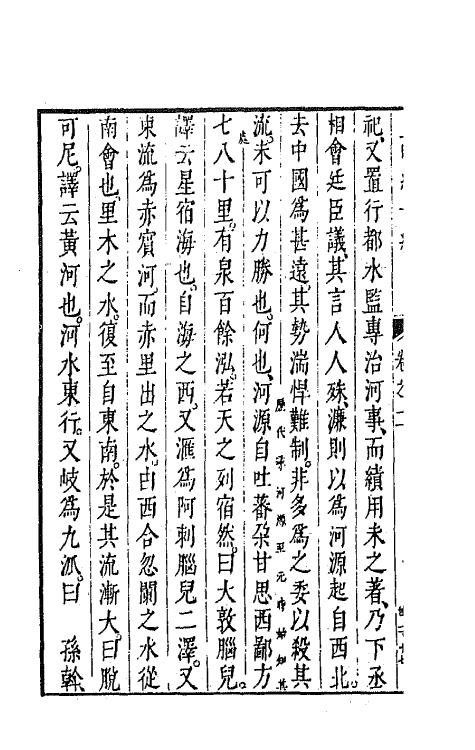 卷之二
祀又置行都水監專治河事而績用未之著乃下丞
相會廷臣議其言人人殊濂則以爲河源起自西北
去中國爲甚遠其勢湍悍難制非多爲之委以殺其
歷代尋河源至元時始知其處
流未可以力勝也何也河源自吐蕃朶甘思西鄙方
七八十里有泉百餘泓若天之列宿然曰火敦腦兒
譯云星宿海也自海之西又滙爲阿剌腦兒二澤又
東流爲赤賓河而赤里出之水由西合忽闌之水從
南會也里木之水復至自東南於是其流漸大曰脫
可尼譯云黃河也河水東行又岐爲九派曰 孫斡